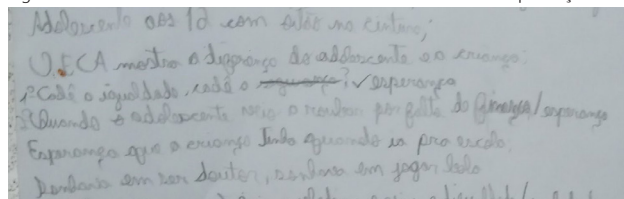 Adolescente aos 12 com oitão na cintura;
O ECA mostra a diferença do adolescente e a criança.
Cadê a igualdade, cadê a segurança? √ esperança
Quando o adolescente veio a roubar por falta de / esperança
Esperança que a criança tinha quando ia pra escola;
Sonhava em ser doutor, sonhava em jogar bola